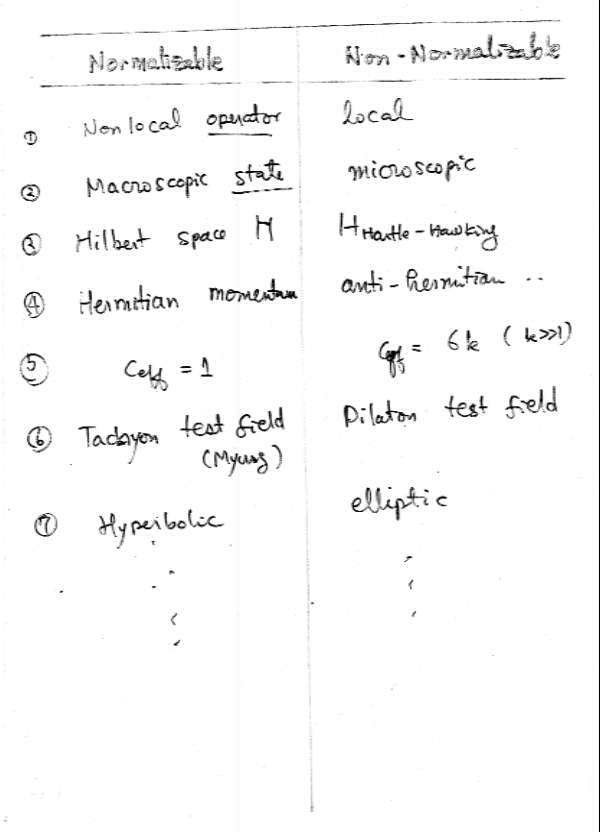 Normalizable Non-Normalizable
① Nonlocal operator local
② Macroscopic state microscopic
③ Hilbert space H H Hartle-Hawking
④ Hermitian momentum anti-hermitian ..
⑤ Ceff = 1 Ceff = 6k (k>>1)
⑥ Tachyon test field Dilaton test field
(Myung)
⑦ Hyperbolic elliptic